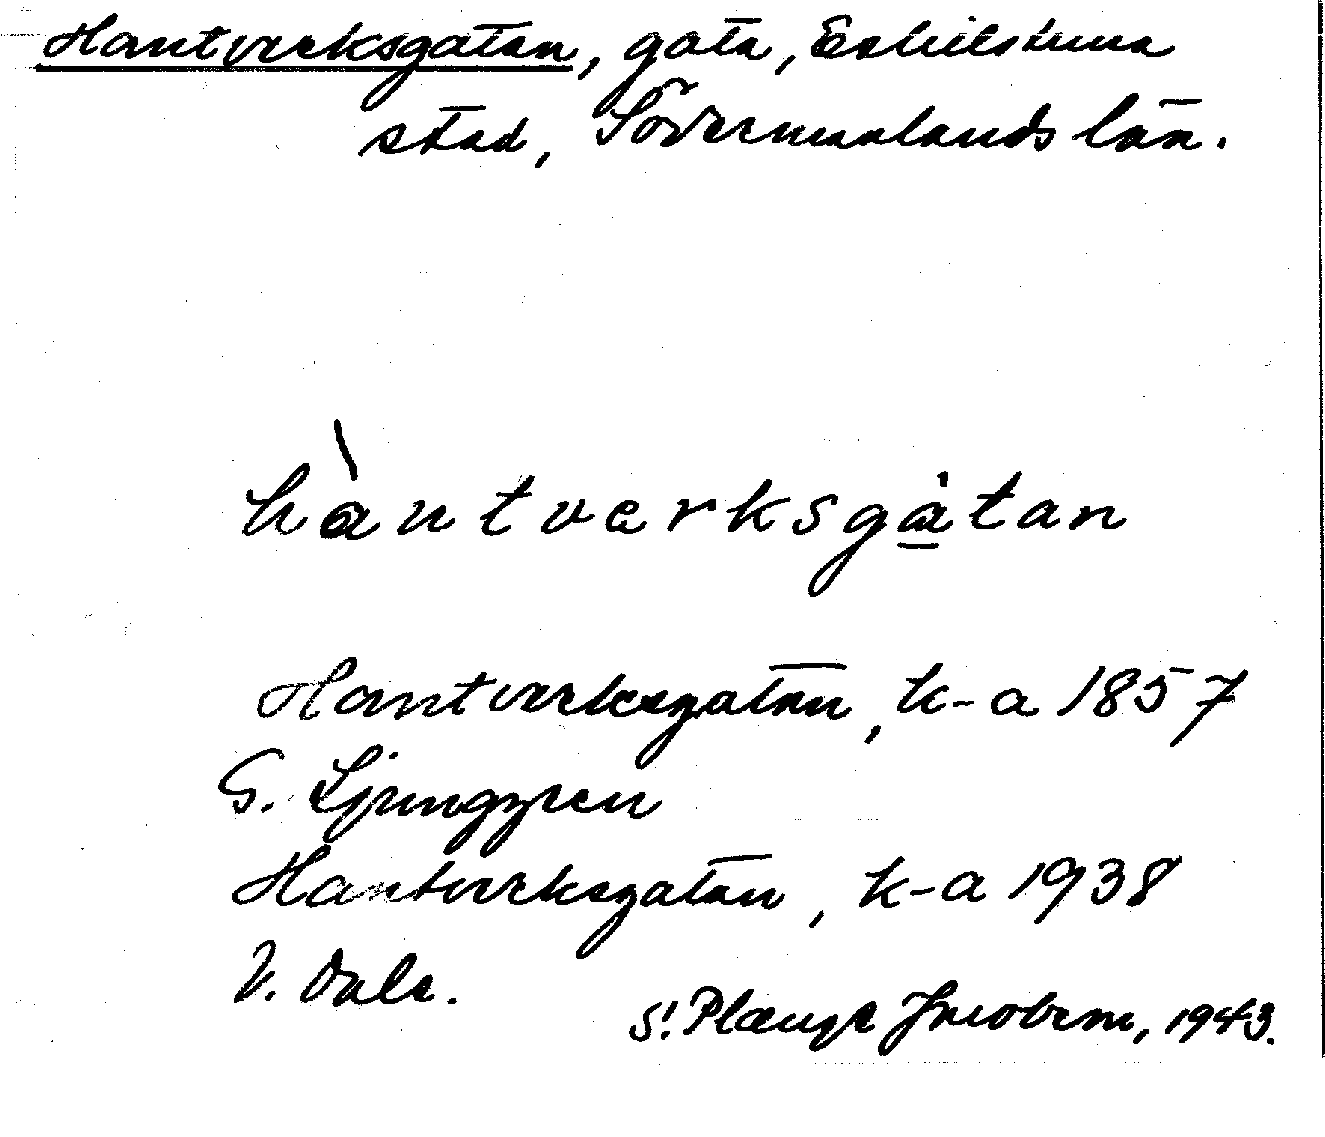 Hantverksgatan, gata, Eskilstuna
stad, Södermanlands län.
hàntverksgàtan
Hantverksgatan, k-a 1857
G. Ljunggren
Hantverksgatan, k-a 1938
V. Dale.
S. Plænge Jacobsen, 1943.